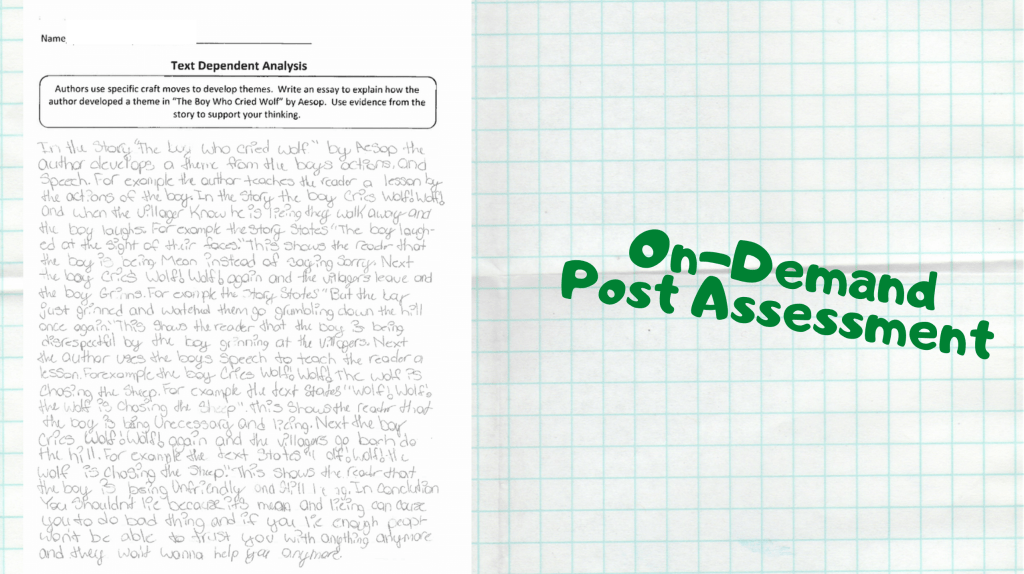 Name
Text Dependent Analysis
Authors use specific craft moves to develop themes. Write an essay to explain how the
author developed a theme in "The Boy Who Cried Wolf" by Aesop. Use evidence from the
story to support your thinking.
In the Story "The boy who cried wolf" by Aesop the
author develops a theme from the boys actions. and
Speech. For example the author teaches the reader a lesson by
the actions of the boy. In the Story the boy Cries Wolf! Wolf!
And when the villager Know he is licing they walk away and
the boy laughs. For example the Story States "The boy laugh-
ed at the sight of their faces." This shows the reader that
the boy is being Mean instead of saying Sorry. Next
the boy Cries Wolf! Wolf! again and the villagers leave and
the boy Grinns. For example the Story States "But the boy
just grinned and watched them go grumbling down the hill
once again." This Shows the reader that the boy is being
disrespectful by the boy grinning at the villagers. Next
the author uses the boys Speech to teach the reader a
lesson. For example the boy Cries Wolf! Wolf! The wolf is
Chosing the Sheep. For example the text States "Wolf! Wolf!
the Wolf is Chasing the Sheep". This Shows the reader that
the boy is being Unecessary and licing. Next the boy
Cries Wolf! Wolf! again and the villagers go back do
the hill. For example the text States "Wolf! the
Wolf is Chosing the Sheep." This Shows the reader that
the boy is being Unfriendly and Still In Conclution
You Shouldnt lie because it's mean and licing can cause
you to do bad thing and if you lie enough peopl
won't be able to trust you with anything anymore
and they wont wanna help you anymore.
On-Demand
Post Assessment